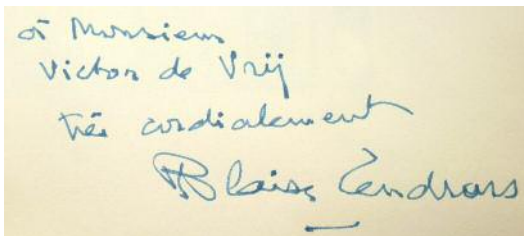 à Monsieur
Victor de Vrij
très cordialement
Blaise Cendrars